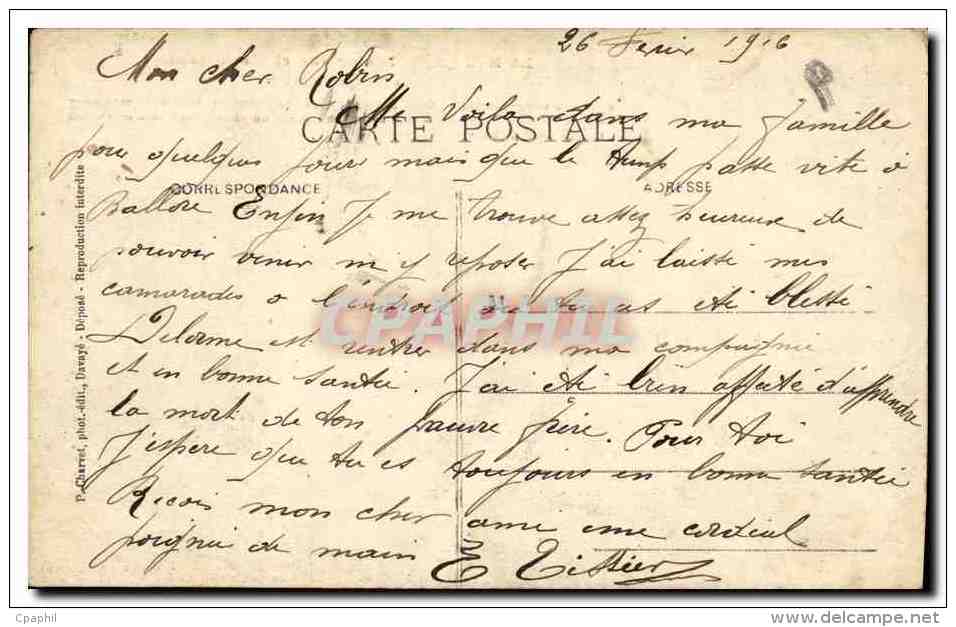 26 Fevrier 1916
Mon cher Robin
Me Voila dans ma famille
CARTE POSTALE
pour quelques jours mais que le temp passe vite à
CORRESPONDANCE ADRESSE
Ballore Enfin Je me trouve assez heureux de
pouvoir venir m'y reposer J'ai laissé mes
camarades a l'endroit ou tu as été blessé
Delorme est rentrer dans ma compagnie
et en bonne santée. J'ai été bien affecté d'apprendre
la mort de ton pauvre frère. Pour toi
J'espere que tu es toujours en bonne santée
Recois mon cher ami une cordial
poignée de main E Tissier
P. Charvet, phot.-édit., Davayé - Déposé - Reproduction interdite
CPAPHIL
Cpaphil
www.delcampe.net